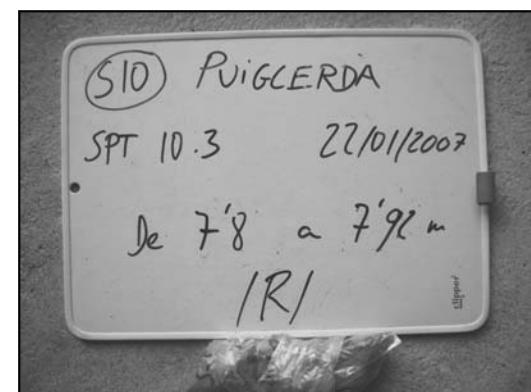 S10 PUIGCERDA
SPT 10.3 22/01/2007
De 7'8 a 7'92 m
/R/